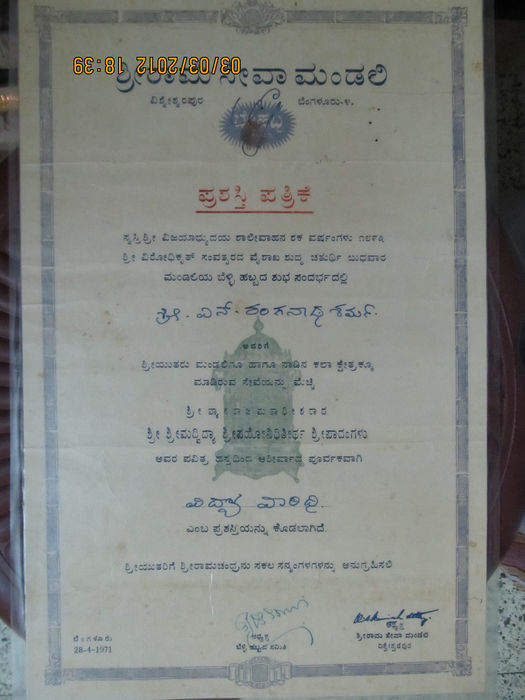 03/03/2012 18:39
ಶ್ರೀರಾಮ ಸೇವಾ ಮಂಡಲಿ
ವಿಶ್ವೇಶ್ವರಪುರ ಬೆಂಗಳೂರು-೪.
ಪ್ರಶಸ್ತಿ ಪತ್ರಿಕೆ
ಸ್ವಸ್ತಿ ಶ್ರೀ ವಿಜಯಾಭ್ಯುದಯ ಶಾಲೀವಾಹನ ಶಕ ವರ್ಷಂಗಳು ೧೮೯೩
ಶ್ರೀ ವಿರೋಧಿಕೃತ್ ಸಂವತ್ಸರದ ವೈಶಾಖ ಶುದ್ಧ ಚತುರ್ಥಿ ಬುಧವಾರ
ಮಂಡಲಿಯ ಬೆಳ್ಳಿ ಹಬ್ಬದ ಶುಭ ಸಂದರ್ಭದಲ್ಲಿ
ಶ್ರೀ. ಎನ್. ರಂಗನಾಥ ಶರ್ಮ.
ಅವರಿಗೆ
ಶ್ರೀಯುತರು ಮಂಡಲಿಗೂ ಹಾಗೂ ನಾಡಿನ ಕಲಾ ಕ್ಷೇತ್ರಕ್ಕೂ
ಮಾಡಿರುವ ಸೇವೆಯನ್ನು ಮೆಚ್ಚಿ
ಶ್ರೀ ವ್ಯಾಸರಾಜಮಠಾಧೀಶರಾದ
ಶ್ರೀ ಶ್ರೀಮದ್ವಿದ್ಯಾ ಶ್ರೀಪಯೋನಿಧಿತೀರ್ಥ ಶ್ರೀಪಾದಂಗಳು
ಅವರ ಪವಿತ್ರ ಹಸ್ತದಿಂದ ಆಶೀರ್ವಾದ ಪೂರ್ವಕವಾಗಿ
ವಿದ್ಯಾ ವಾರಿಧಿ.
ಎಂಬ ಪ್ರಶಸ್ತಿಯನ್ನು ಕೊಡಲಾಗಿದೆ.
ಶ್ರೀಯುತರಿಗೆ ಶ್ರೀರಾಮಚಂದ್ರನು ಸಕಲ ಸನ್ಮಂಗಳಗಳನ್ನು ಅನುಗ್ರಹಿಸಲಿ
ಬೆಂಗಳೂರು
28-4-1971
ಅಧ್ಯಕ್ಷ
ಬೆಳ್ಳಿ ಹಬ್ಬದ ಸಮಿತಿ
ಅಧ್ಯಕ್ಷ
ಶ್ರೀರಾಮ ಸೇವಾ ಮಂಡಲಿ
ವಿಶ್ವೇಶ್ವರಪುರ